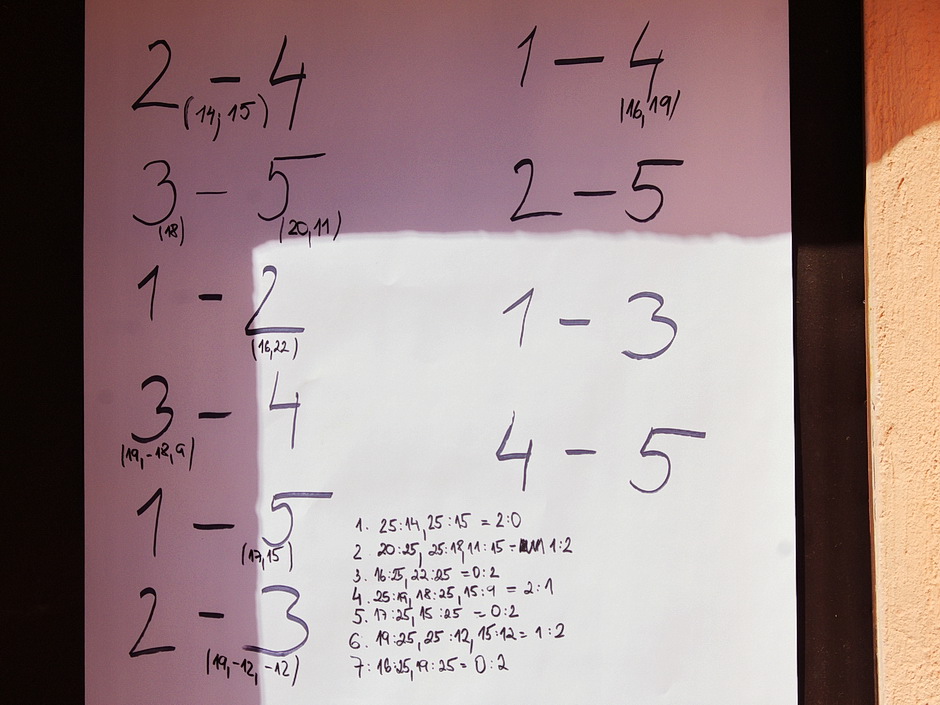 2 - 4
(14, 15)
3 - 5
(18) (20, 11)
1 - 2
(16,22)
3 - 4
(19,-18,9)
1 - 5
(17,15)
2 - 3
(19,-12, -12)
1 - 4
(16,19)
2 - 5
1 - 3
4 - 5
1. 25:14, 25:15 = 2:0
2 20:25, 25:18, 11:15 - 1:2
3. 16:25, 22:25 = 0:2
4. 25:19, 18:25, 15:9 = 2:1
5. 17:25, 15:25 = 0:2
6. 19:25, 25:12, 15:12 = 1:2
7: 16:25, 19:25 = 0:2